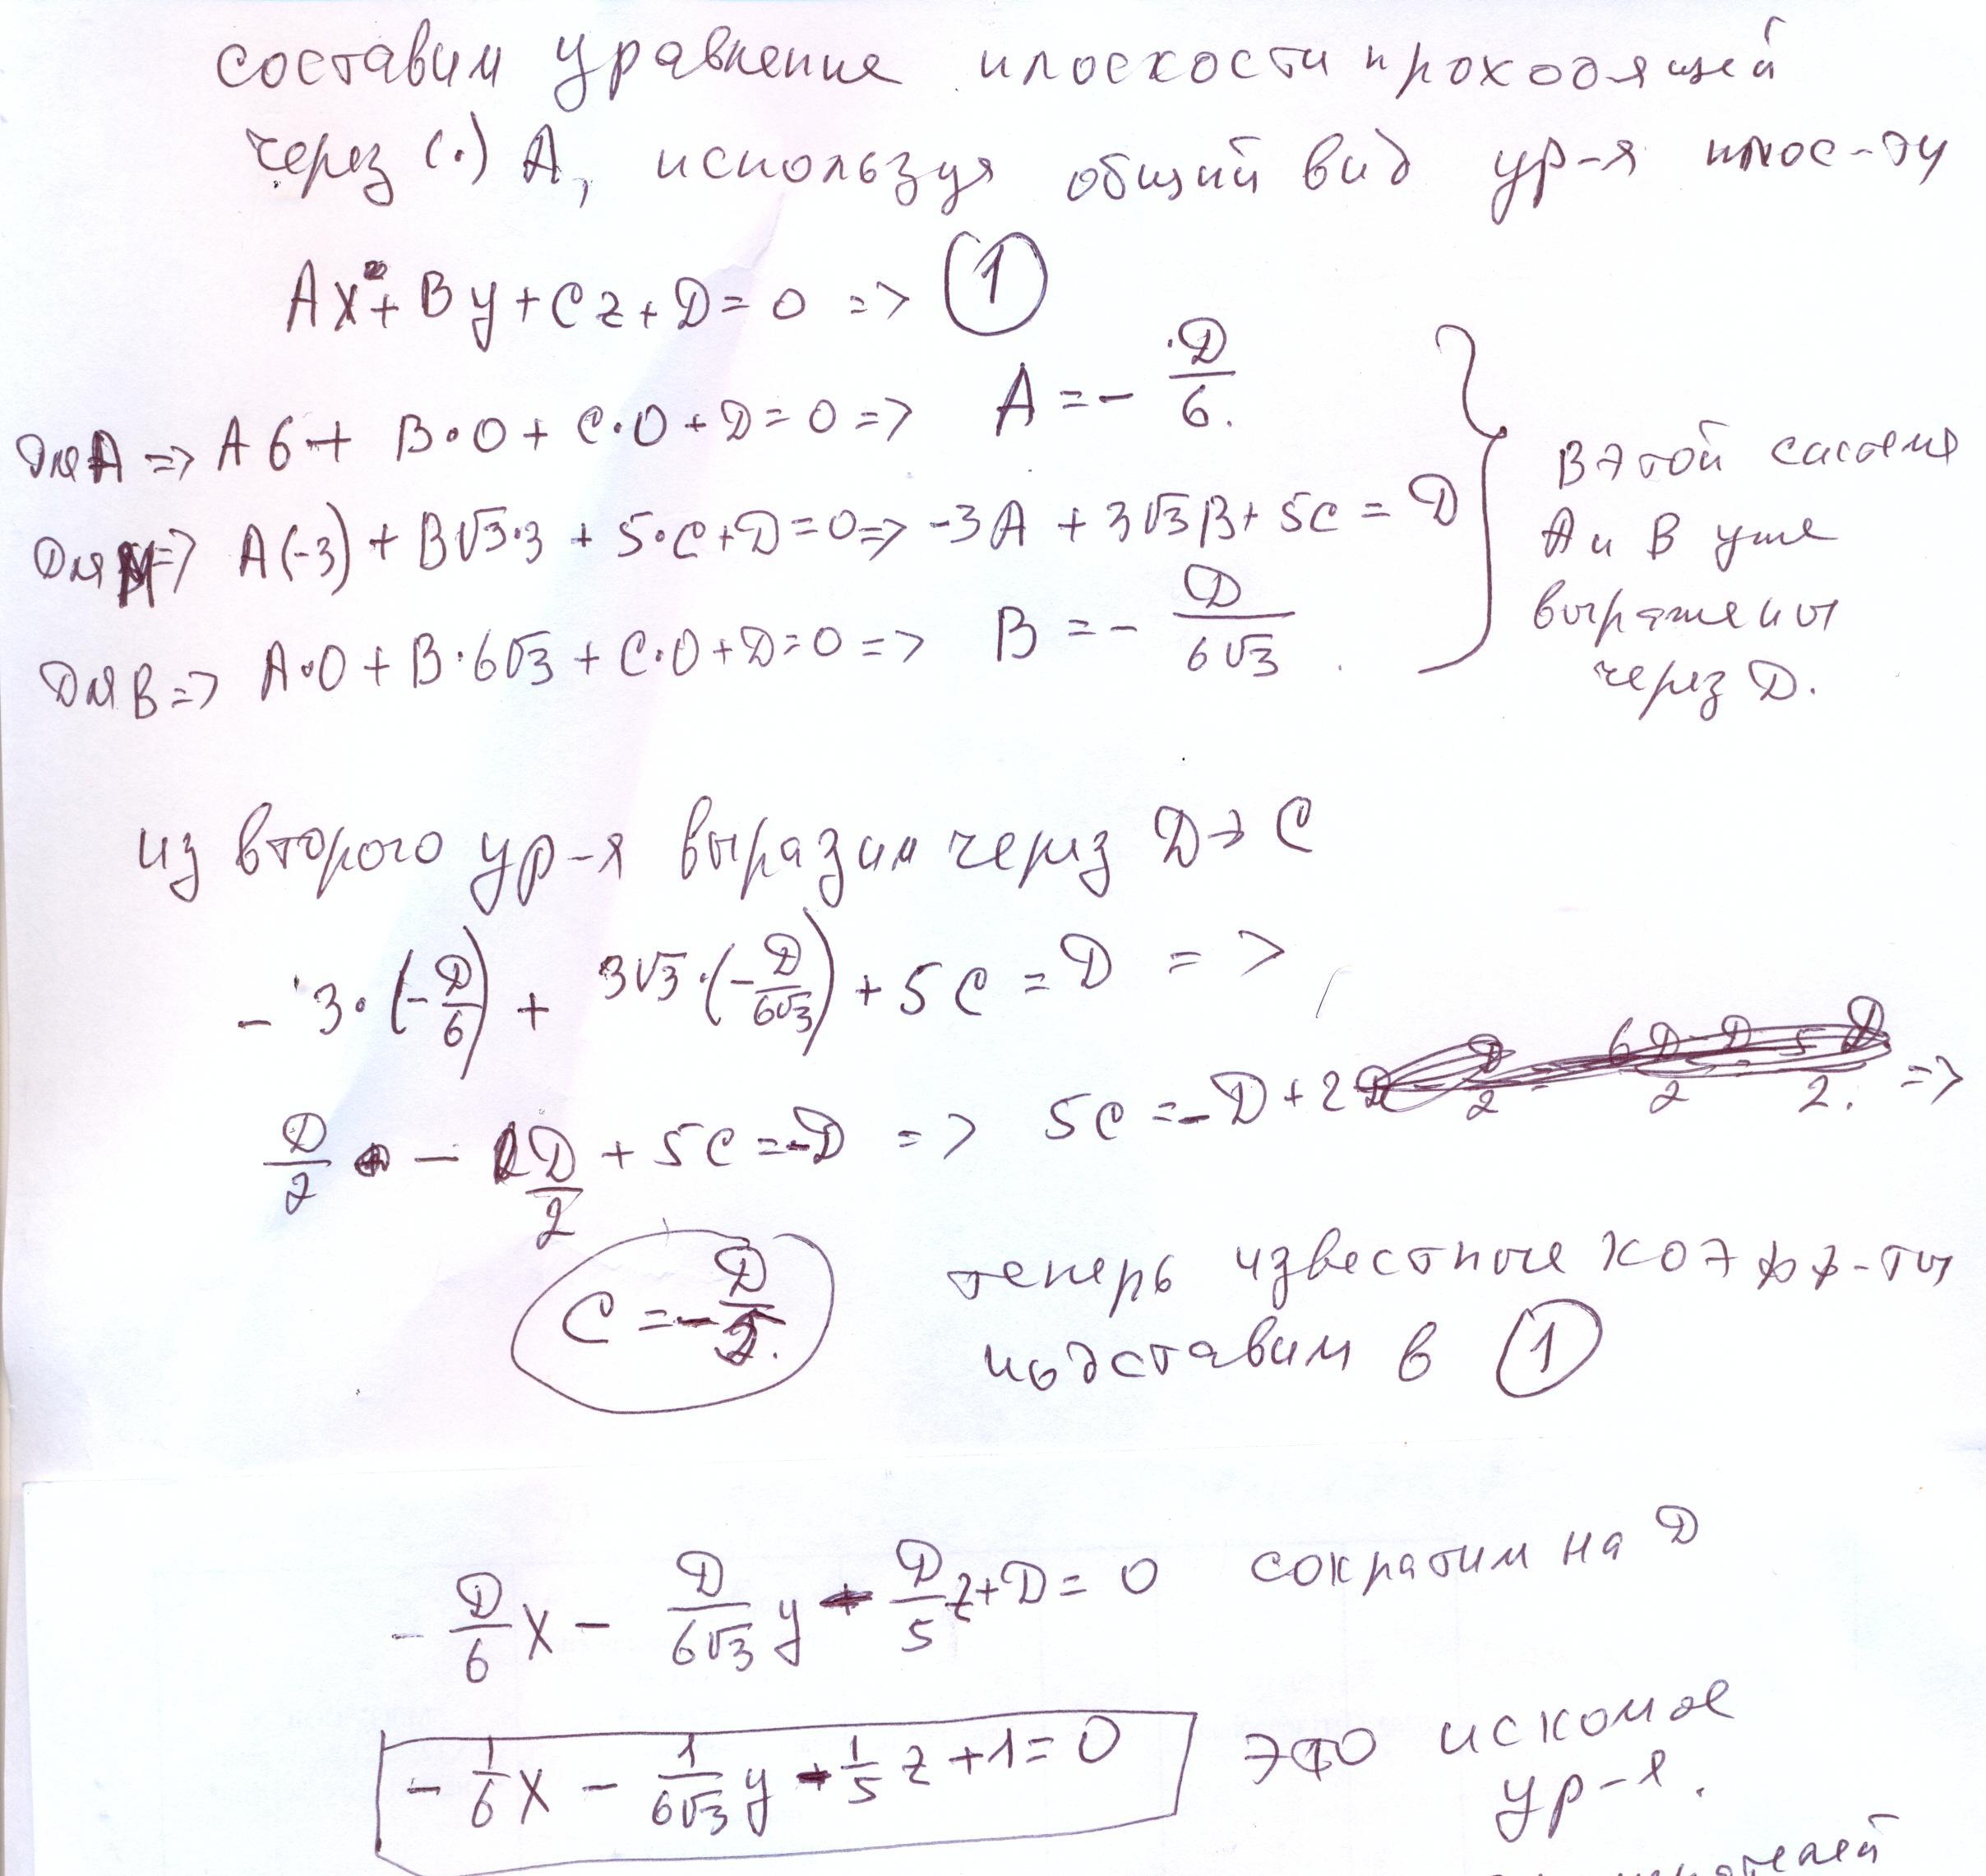 составим уравнение плоскости проходящей
через (.) A, используя общий вид ур-я плос-ти
Ax + By + Cz + D = 0 => (1)
Для A => A6 + B·0 + C·0 + D = 0 => A = - D/6.
Для M => A(-3) + B√3·3 + 5·C + D = 0 => -3A + 3√3B + 5C = D
Для B => A·0 + B·6√3 + C·0 + D = 0 => B = - D/(6√3).
В этой системе
A и B уже
выражены
через D.
из второго ур-я выразим через D → C
-3·(-D/6) + 3√3·(-D/(6√3)) + 5C = D =>
D/2 - D/2 + 5C = -D => 5C = -D + 2 =>
C = - D/
теперь известные коэфф-ты
подставим в (1)
- D/6 x - D/(6√3) y - D/5 z + D = 0 сократим на D
- 1/6 x - 1/(6√3) y - 1/5 z + 1 = 0 это искомое
ур-я.